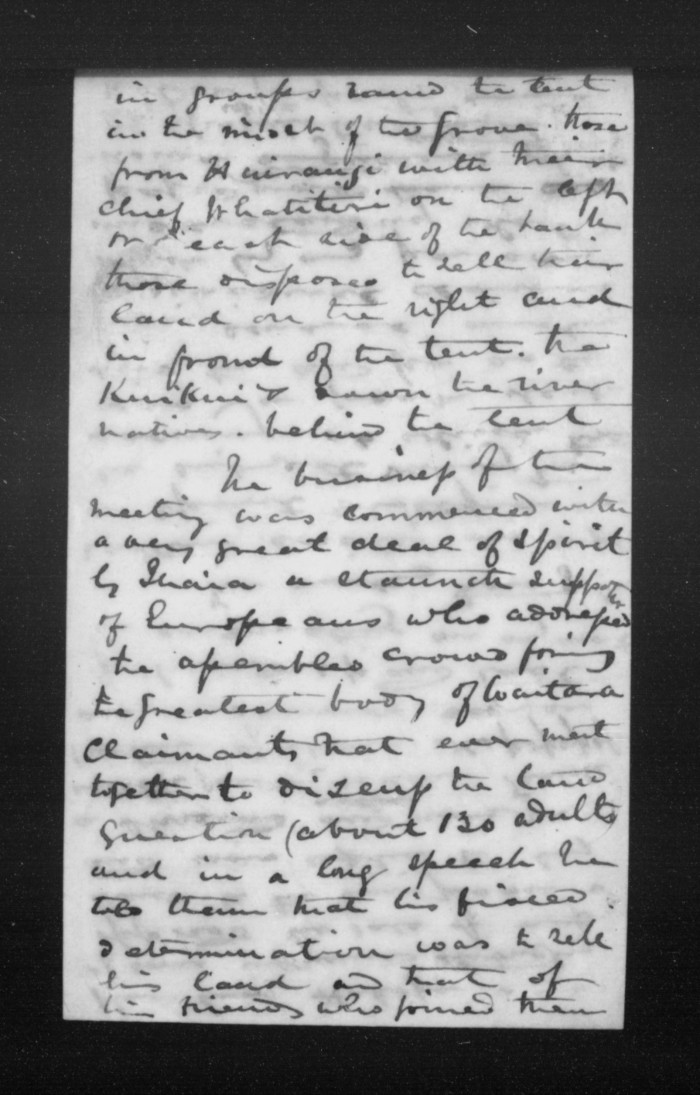 in groups round the tent
in the midst of the Grove. those
from Huirangi with their
chief Whatitiri on the left
on each side of the bank
those disposed to sell their
land on the right and
in frond of the tent. the
Kuikui's down the river
natives. behind the tent
The business of the
meeting was commenced with
a very great deal of spirit
by Ihaia a staunch supporter
of Europeans who addressed
the assembled crowd formg
the greatest body of Waitara
Claimants that ever met
together to discuss the land
question (about 130 adults
and in a long speech he
told them that his fixed
determination was to sell
his land and that of
his friends who joined them